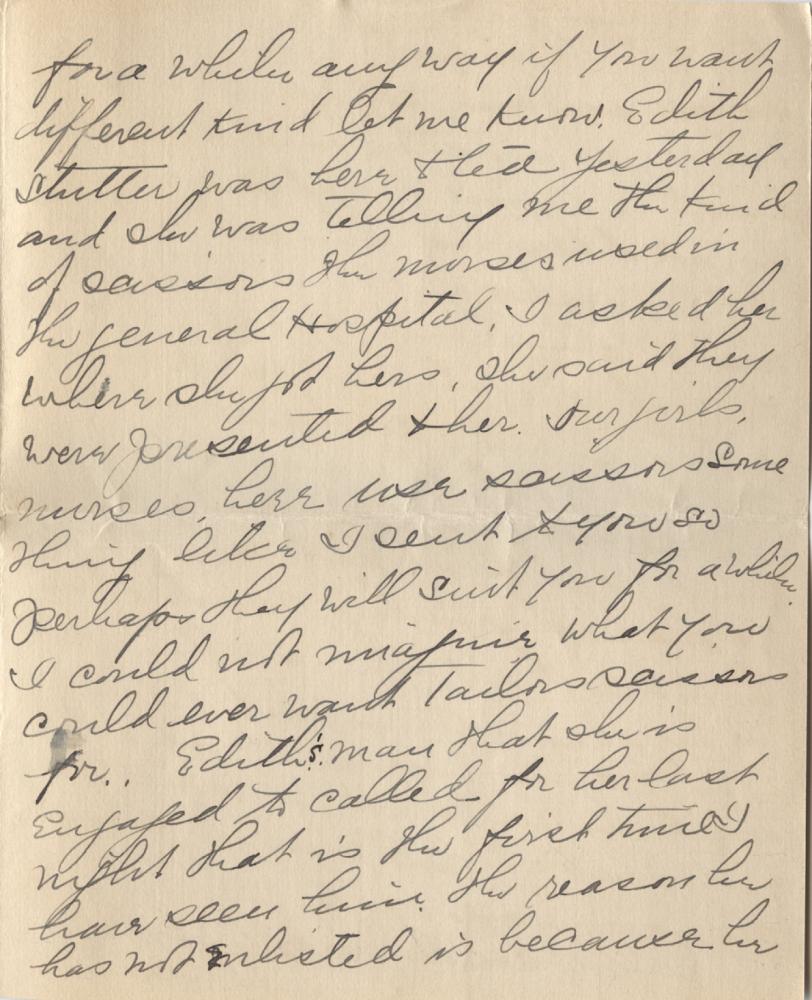 for a while any way if you want
different kind let me know. Edith
Stutter was here & tea yesterday
and she was telling me the kind
of scissors the nurses used in
the general Hospital, I asked her
where she got hers, she said they
were presented & her. Our girls,
nurses, here use scissors some
thing like I sent & you so
perhaps they will suit you for a while.
I could not imagine what you
could ever want Tailors scissors
for.. Edith's man that she is
engaged to called for her last
night that is the first time I
have seen him. The reason he
has not enlisted is because he